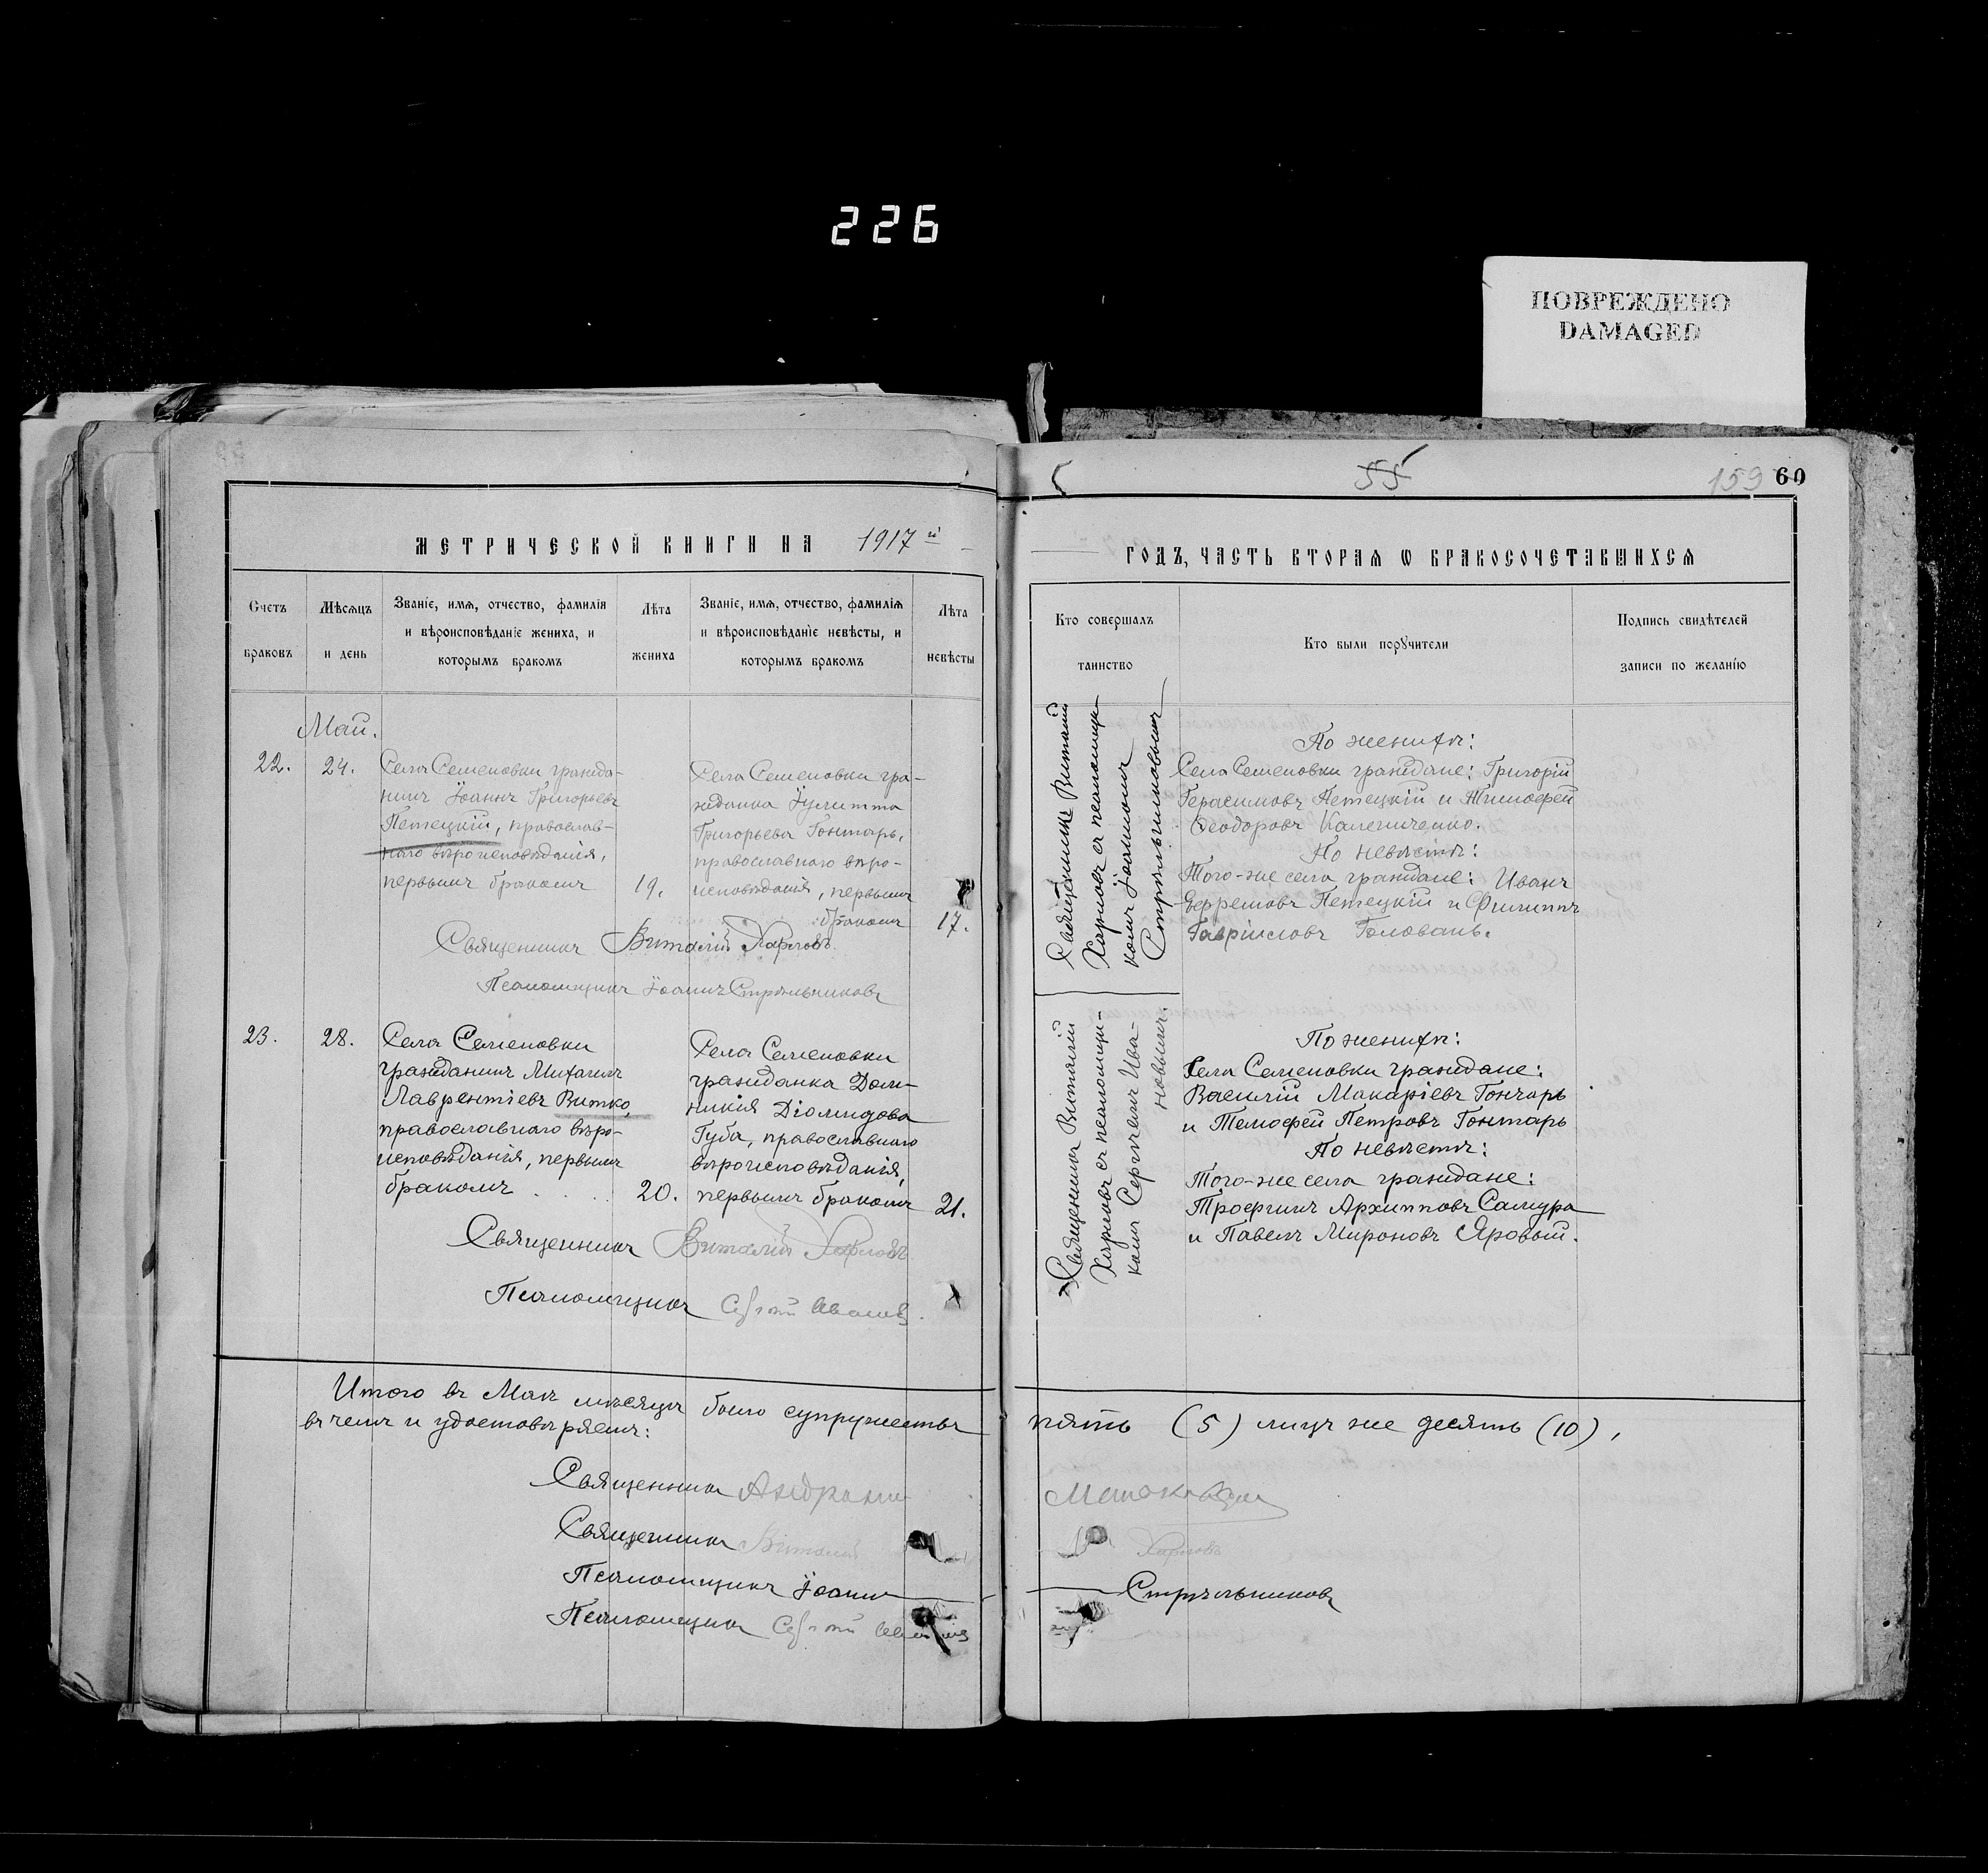 226
ПОВРЕЖДЕНО
DAMAGED
55
159 60
МЕТРИЧЕСКОЙ КНИГИ НА 1917й
ГОДЪ, ЧАСТЬ ВТОРАЯ Ѡ БРАКОСОЧЕТАВШИХСЯ
Счетъ
браковъ
Мѣсяцъ
и день
Званіе, имя, отчество, фамилія
и вѣроисповѣданіе жениха, и
которымъ бракомъ
Лѣта
жениха
Званіе, имя, отчество, фамилія
и вѣроисповѣданіе невѣсты, и
которымъ бракомъ
Лѣта
невѣсты
Кто совершалъ
таинство
Кто были поручители
Подпись свидѣтелей
записи по желанію
Май.
22.
24.
Села Семеновки гражда-
нинъ Іоаннъ Григорьевъ
Петецкій, православ-
наго вѣроисповѣданія,
первымъ бракомъ
19.
Села Семеновки гра-
жданка Іулитта
Григорьева Гонтарь,
православнаго вѣро-
исповѣданія, первымъ
бракомъ
17.
Священникъ Виталій Харловъ
Псаломщикъ Іоаннъ Стрѣльниковъ
Священникъ Виталій
Харловъ съ псаломщи-
комъ Іоанномъ
Стрѣльниковымъ
По женихѣ:
Села Семеновки граждане: Григорій
Герасимовъ Петецкій и Тимофей
Ѳеодоровъ Калениченко.
По невѣстѣ:
Того-же села граждане: Иванъ
Ефремовъ Петецкій и Филиппъ
Гавріиловъ Головань.
23.
28.
Села Семеновки
гражданинъ Михаилъ
Лаврентіевъ Витко
православнаго вѣро-
исповѣданія, первымъ
бракомъ
20.
Села Семеновки
гражданка Дом-
никія Діомидова
Губа, православнаго
вѣроисповѣданія,
первымъ бракомъ
21.
Священникъ Виталій Харловъ
Псаломщикъ Сергій Ивановъ.
Священникъ Виталій
Харловъ съ псаломщи-
комъ Сергѣемъ Ива-
новымъ.
По женихѣ:
Села Семеновки граждане:
Василій Макаріевъ Гончарь
и Темофей Петровъ Гонтарь
По невѣстѣ:
Того-же села граждане:
Трофимъ Архипповъ Самура
и Павелъ Мироновъ Яровый.
Итого въ Маѣ мѣсяцѣ было супружествъ пять (5) лицъ же десять (10),
въ чемъ и удостовѣряемъ:
Священникъ
Священникъ Виталій Харловъ
Псаломщикъ Іоаннъ Стрѣльниковъ
Псаломщикъ Сергій Ивановъ